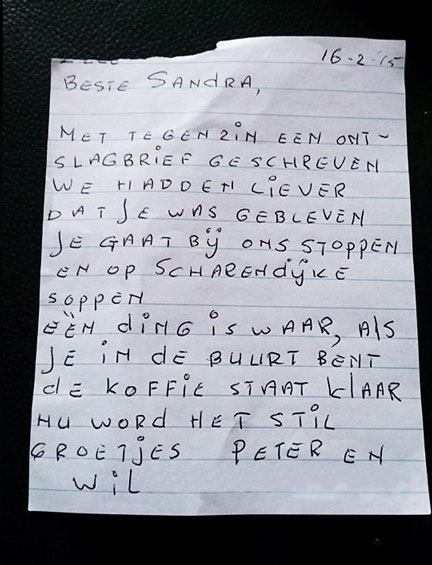 16-2-15
BESTE SANDRA,
MET TEGENZIN EEN ONT-
SLAGBRIEF GESCHREVEN
WE HADDEN LIEVER
DAT JE WAS GEBLEVEN
JE GAAT BIJ ONS STOPPEN
EN OP SCHARENDIJKE
SOPPEN
EËN DING IS WAAR, ALS
JE IN DE BUURT BENT
DE KOFFIE STAAT KLAAR
NU WORD HET STIL
GROETJES PETER EN
WIL